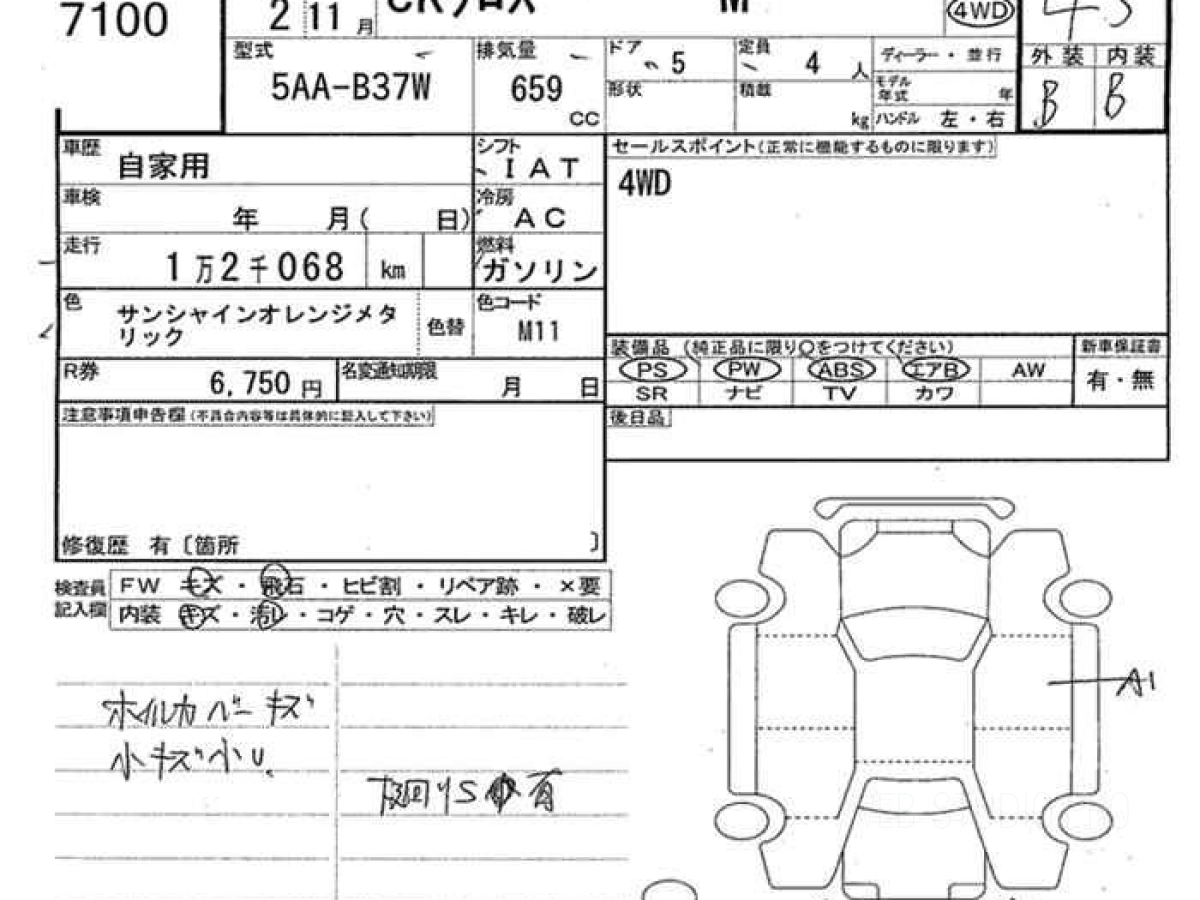 7100
2 11月
CRクロス M
4WD
4.5
型式
5AA-B37W
排気量
659
CC
ドア
5
定員
4人
形状
積載
kg
ディーラー・並行
モデル年式 年
ハンドル 左・右
外装 内装
B B
車歴
自家用
シフト
IAT
車検
年 月( 日)
冷房
AC
走行
1万2千068 km
燃料
ガソリン
色
サンシャインオレンジメタ
リック
色替
色コード
M11
R券
6,750円
名変通知期限
月 日
セールスポイント(正常に機能するものに限ります)
4WD
装備品 (純正品に限り○をつけてください)
PS PW ABS エアB AW
SR ナビ TV カワ
新車保証書
有・無
後日品
注意事項申告欄(不具合内容等は具体的に記入して下さい)
修復歴 有〔箇所 〕
検査員
記入欄
FW キズ・飛石・ヒビ割・リペア跡・×要
内装 キズ・汚レ・コゲ・穴・スレ・キレ・破レ
ホイルカバーキズ
小キズ小U.
下廻りS 有
A1